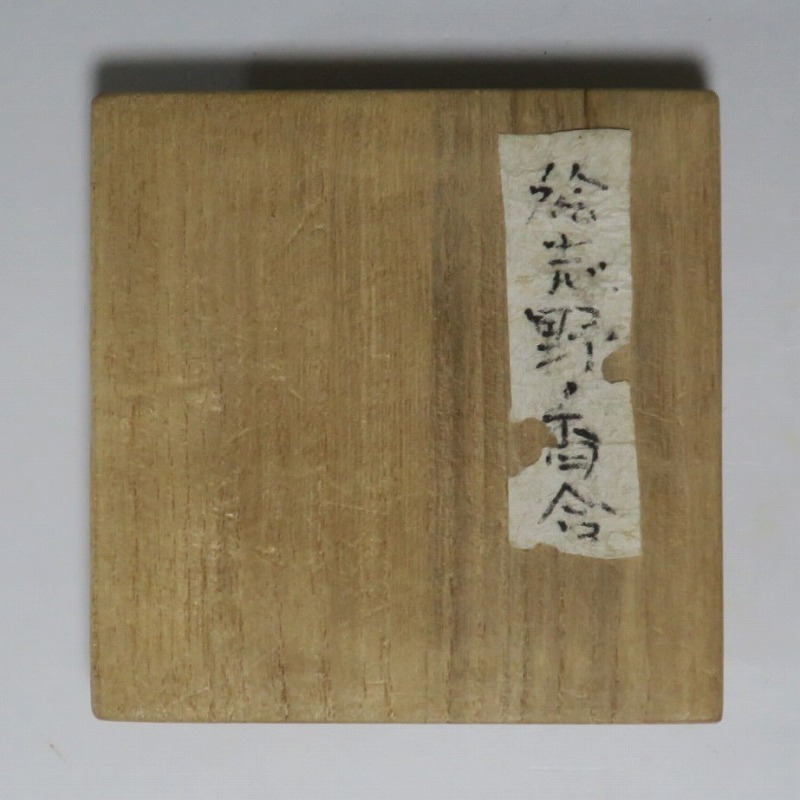 絵志野・香合